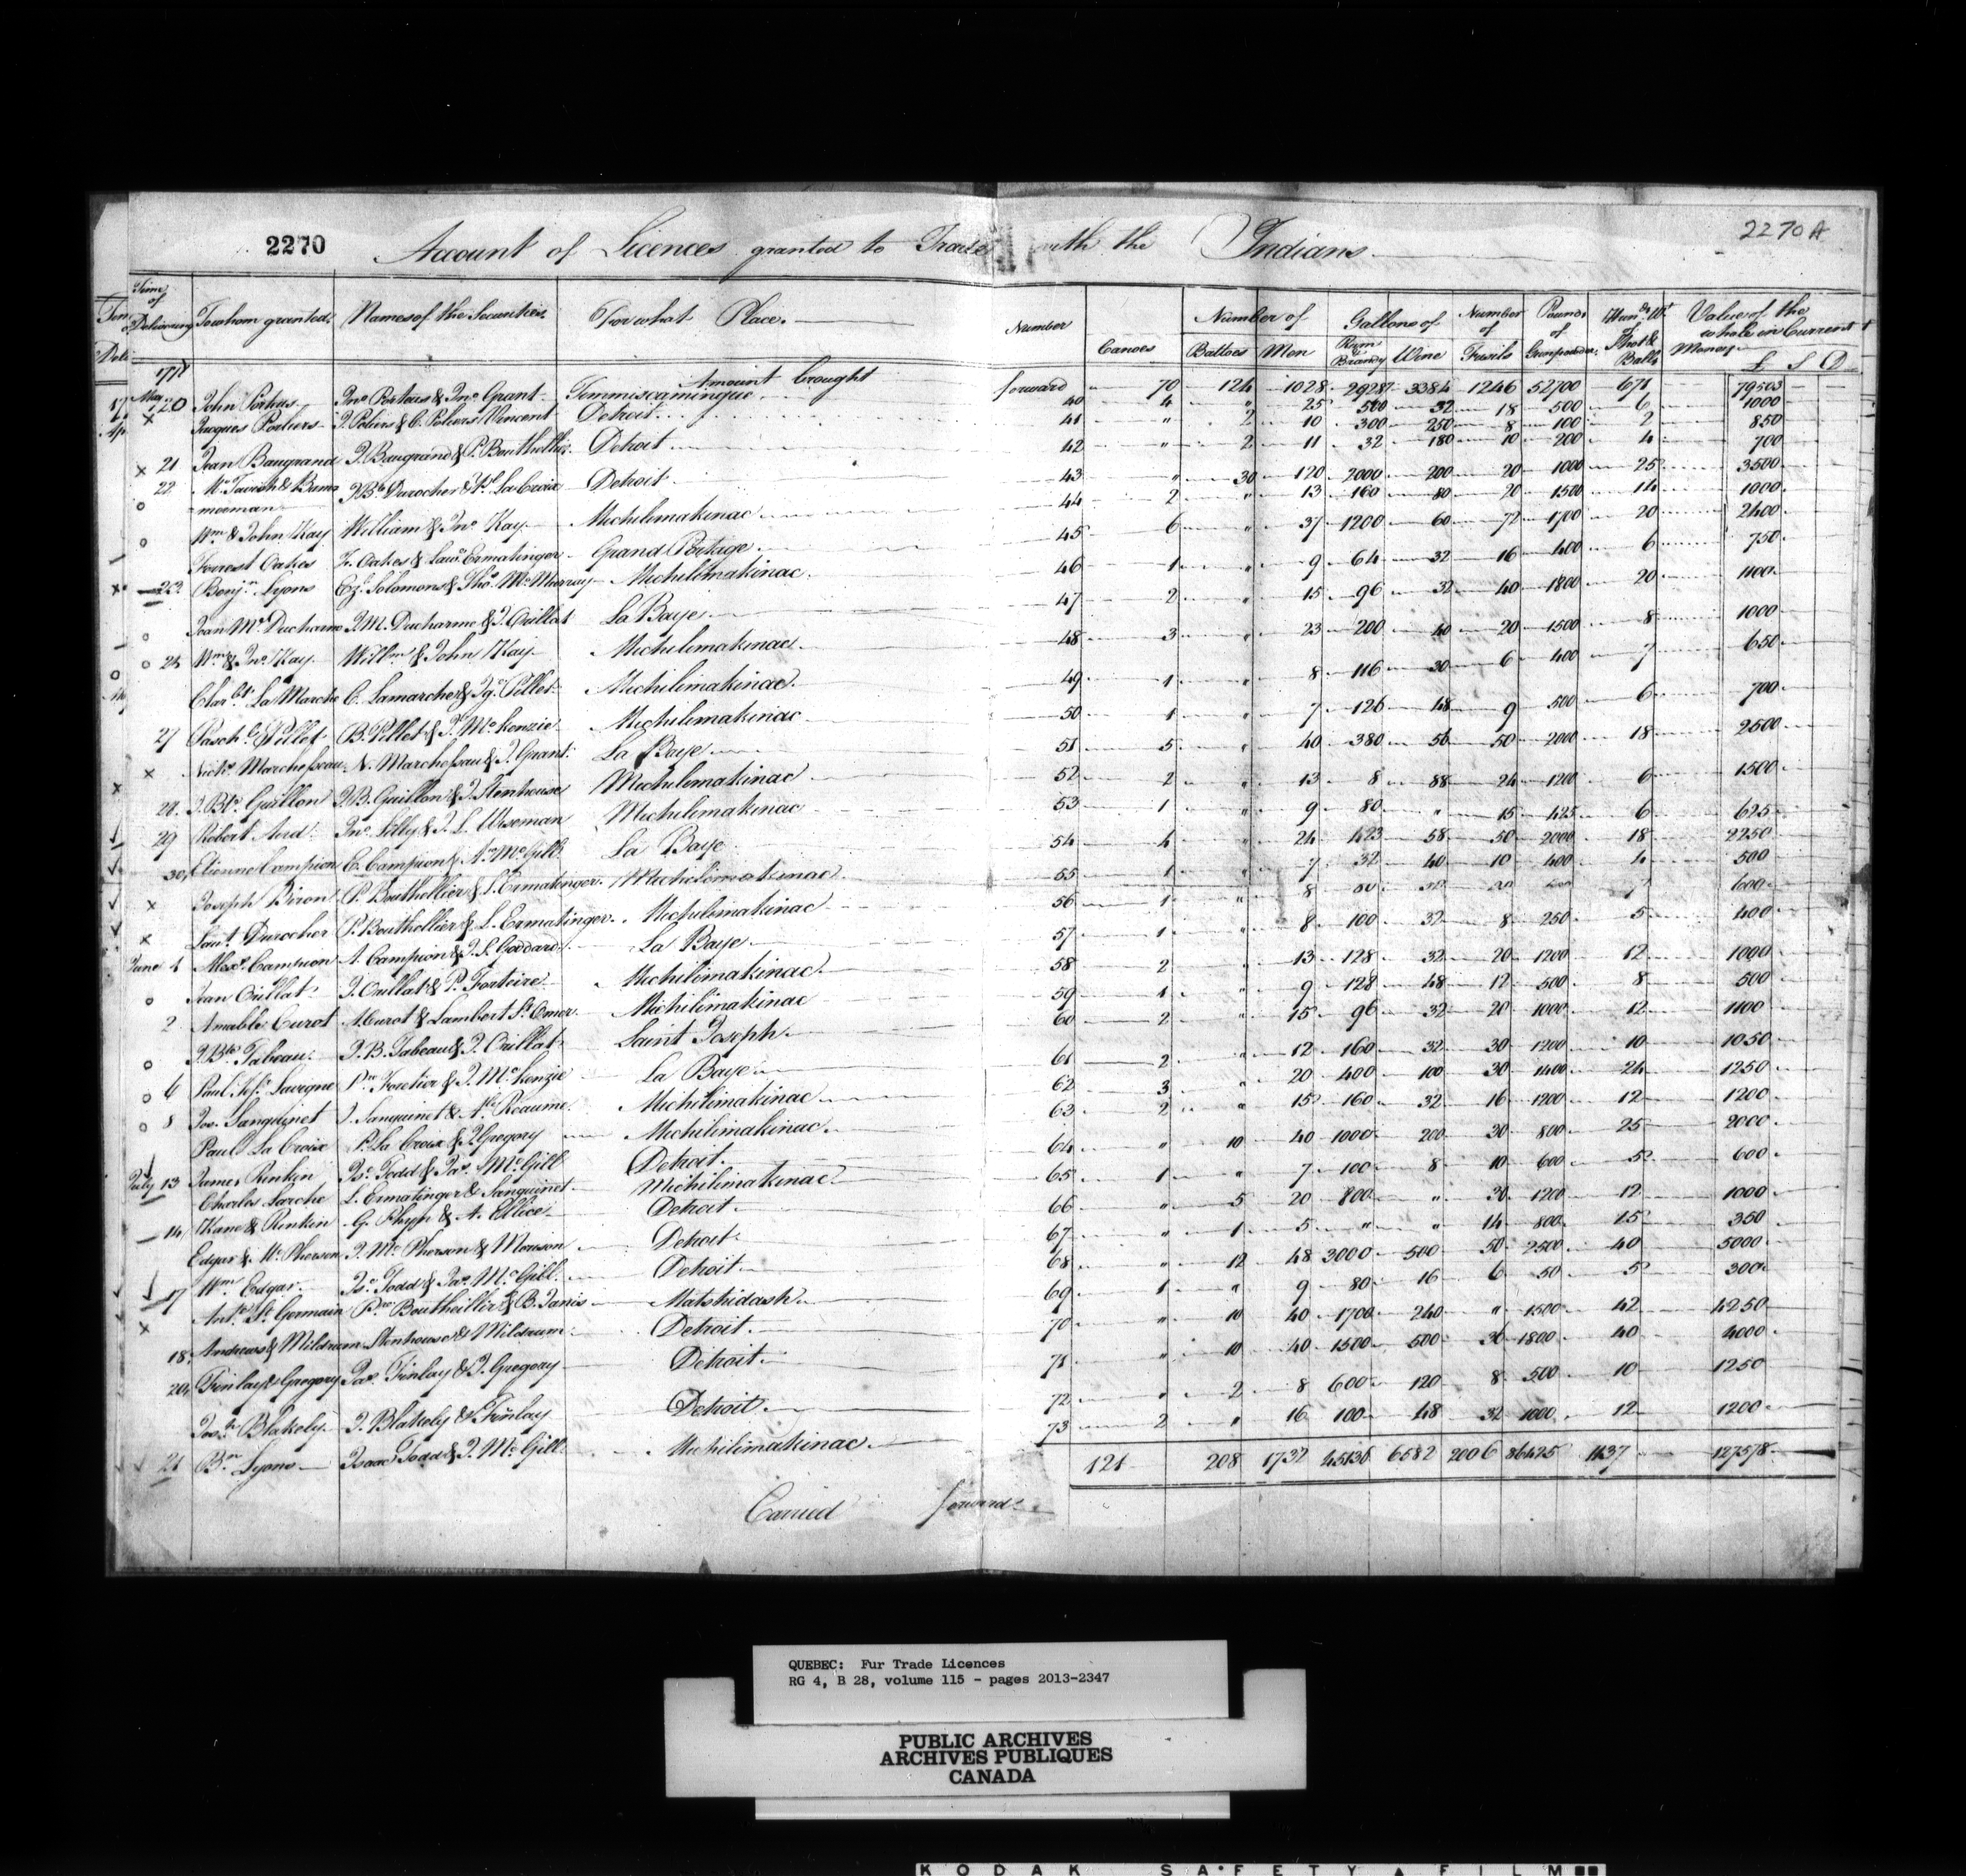 2270 Account of Licences granted to Trade with the Indians 2270 A
Time of Delivering To whom granted Names of the Securities For what Place. Number Canoes Number of Battoes Men Gallons of Rum & Brandy Wine Number of Fusils Pounds of Gunpowder Hund. Wt. Shot & Ball Value of the whole in Current Money £ S D
Amount brought forward 70 124 1028 2928 3384 1246 52700 671 79503
May 20 John Porteus Jno Porteus & Jno Grant Temmiscamingue 40 4 " 25 500 32 18 500 6 1000
x Jacques Poliers J. Poliers & C. Poliers Vincent Detroit 41 " 2 10 300 250 8 100 2 850
x 21 Jean Baugrand J. Baugrand & P. Bouthellier Detroit 42 " 2 11 32 180 10 200 4 700
22 McTavish & Bannerman J. Bte Durocher & Pl La Croix Detroit 43 " 30 120 2000 200 20 1000 25 3500
o Wm & John Kay William & Jno Kay Michilimakinac 44 2 " 13 160 80 20 1500 14 1000
o Forrest Oakes F. Oakes & Lawe Ermatinger Grand Portage 45 6 " 37 1200 60 72 1700 20 2400
23 Benjn Lyons Ez. Solomons & Thos McMurray Michilimakinac 46 1 " 9 64 32 16 400 6 750
Jean Me Ducharme J. M. Ducharme & J. Orillat La Baye 47 2 " 15 96 32 40 1800 20 1100
o 24 Wm & Jno Kay Willm & John Kay Michilimakinac 48 3 " 23 200 40 20 1500 8 1000
Char. La Marche C. Lamarche & Igs Pillet Michilimakinac 49 1 " 8 116 30 6 400 7 650
27 Pasch. Pillet B. Pillet & Js McKenzie Michilimakinac 50 1 " 7 126 48 9 500 6 700
x Nichs Marchesseau N. Marchesseau & J. Grant La Baye 51 5 " 40 380 56 50 2000 18 2500
28 J. Bte Guillon J. B. Guillon & J. Stenhouse Michilimakinac 52 2 " 13 8 88 24 1200 6 1500
29 Robert Aird Jno Lilly & J. L. Wiseman Michilimakinac 53 1 " 9 80 " 15 425 6 625
30 Etienne Campion E. Campion & An McGill La Baye 54 4 " 24 423 58 50 2000 18 2250
x Joseph Biron P. Bouthellier & L. Ermatinger Michilimakinac 55 1 " 7 32 40 10 400 4 500
x Laut. Durocher P. Bouthellier & L. Ermatinger Michilimakinac 56 1 " 8 7 600
June 1 Alexr Campion A. Campion & J. S. Goddard La Baye 57 1 " 8 100 32 8 250 5 400
o Jean Orillat J. Orillat & P. Forteire Michilimakinac 58 2 " 13 128 32 20 1200 12 1000
2 Amable Curot A. Curot & Lambert St Omer Michilimakinac 59 1 " 9 128 48 12 500 8 500
o J. Bte Tabeau J. B. Tabeau & J. Orillat Saint Joseph 60 2 " 15 96 32 20 1000 12 1100
o 6 Paul Lavigne Pre Foretier & J. McKenzie La Baye 61 2 " 12 160 32 30 1200 10 1050
o 8 Jos. Sanguinet J. Sanguinet & Reaume Michilimakinac 62 3 " 20 400 100 30 1400 24 1250
Paul La Croix P. La Croix & J. Gregory Michilimakinac 63 2 " 15 160 32 16 1200 12 1200
July 13 James Rinkin Is. Todd & Jas. McGill Detroit 64 " 10 40 1000 200 30 800 25 2000
Charles Larche L. Ermatinger & Sanguinet Michilimakinac 65 1 " 7 100 8 10 600 5 600
14 Kane & Rinkin G. Phyn & A. Ellice Detroit 66 " 5 20 800 " 30 1200 12 1000
Edgar & McPherson J. McPherson & Morison Detroit 67 " 1 5 " " 14 800 15 350
17 Wm Edgar Is. Todd & Jas. McGill Detroit 68 " 12 48 3000 500 50 2500 40 5000
x Ant. St Germain Pre Bouthellier & B. Janis Matshidash 69 1 " 9 80 16 6 50 5 300
18 Andrews & Mildrum Stenhouse & Mildrum Detroit 70 " 10 40 1700 240 " 1500 42 4250
20 Finlay & Gregory Jas. Finlay & J. Gregory Detroit 71 " 10 40 1500 500 36 1800 40 4000
Josh Blakely J. Blakely & Finlay Detroit 72 " 2 8 600 120 8 500 10 1250
21 Bn Lyons Isaac Todd & J. McGill Michilimakinac 73 2 " 16 100 48 32 1000 12 1200
121 208 1732 45136 6682 2006 86425 1137 127578
Carried forward
QUEBEC: Fur Trade Licences
RG 4, B 28, volume 115 - pages 2013-2347
PUBLIC ARCHIVES
ARCHIVES PUBLIQUES
CANADA
KODAK SAFETY FILM